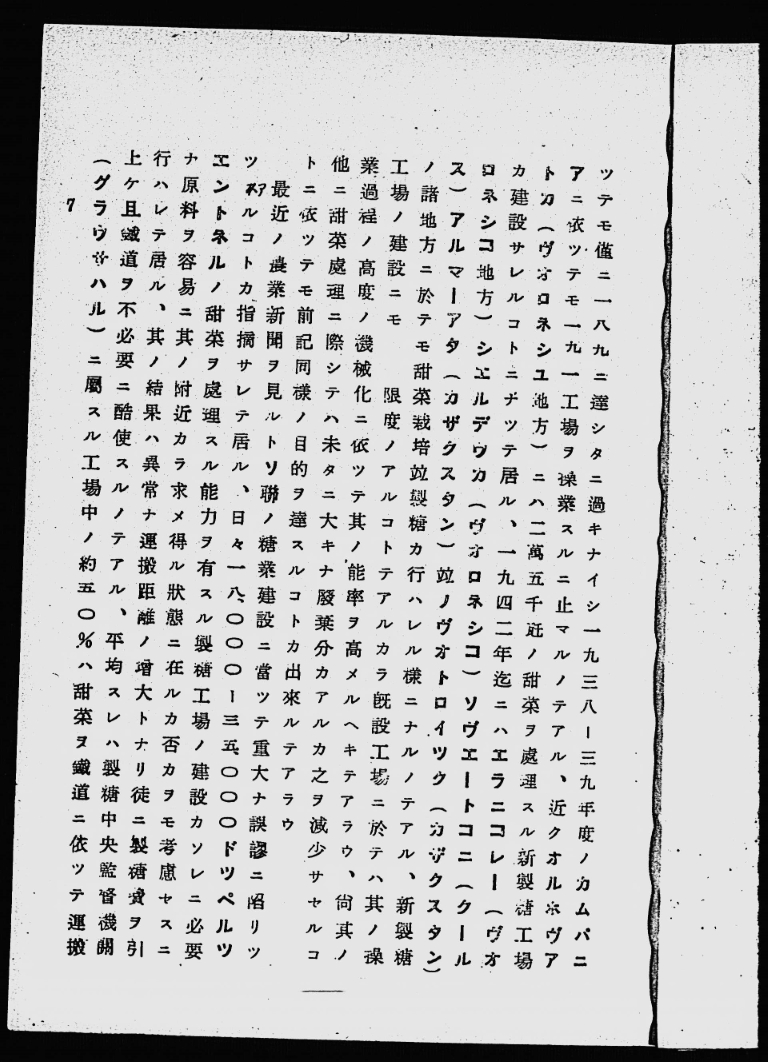 ツテモ僅ニ一八九ニ達シタニ過キナイシ一九三八ー三九年度ノカムパニ
アニ依ツテモ一九一工場ヲ操業スルニ止マルノテアル、近クオルホヴア
トカ(ヴオロネシユ地方)ニハ二萬五千瓩ノ甜菜ヲ處理スル新製糖工場
カ建設サレルコトニナツテ居ル、一九四二年迄ニハエラニコレー(ヴオ
ロネシコ地方)シエルデウカ(ヴオロネシコ)ソヴエートコニ(クール
ス)アルマーアタ(カザクスタン)竝ノヴオトロイツク(カザクスタン)
ノ諸地方ニ於テモ甜菜栽培竝製糖カ行ハレル樣ニナルノテアル、新製糖
工場ノ建設ニモ 限度ノアルコトテアルカラ既設工場ニ於テハ其ノ操
業過程ノ高度ノ機械化ニ依ツテ其ノ能率ヲ高メルヘキテアラウ、尙其ノ
他ニ甜菜處理ニ際シテハ未タニ大キナ廢棄分カアルカ之ヲ減少サセルコ
トニ依ツテモ前記同樣ノ目的ヲ達スルコトカ出來ルテアラウ
最近ノ農業新聞ヲ見ルトソ聯ノ糖業建設ニ當ツテ重大ナ誤謬ニ陷リツ
ツアルコトカ指摘サレテ居ル、日々一八、〇〇〇ー三五、〇〇〇ドツペルツ
エントネルノ甜菜ヲ處理スル能力ヲ有スル製糖工場ノ建設カソレニ必要
ナ原料ヲ容易ニ其ノ附近カラ求メ得ル狀態ニ在ルカ否カヲモ考慮セスニ
行ハレテ居ル、其ノ結果ハ異常ナ運搬距離ノ增大トナリ徒ニ製糖費ヲ引
上ケ且鐵道ヲ不必要ニ酷使スルノテアル、平均スレハ製糖中央監督機關
(グラウサハル)ニ屬スル工場中ノ約五〇％ハ甜菜ヲ鐵道ニ依ツテ運搬
7